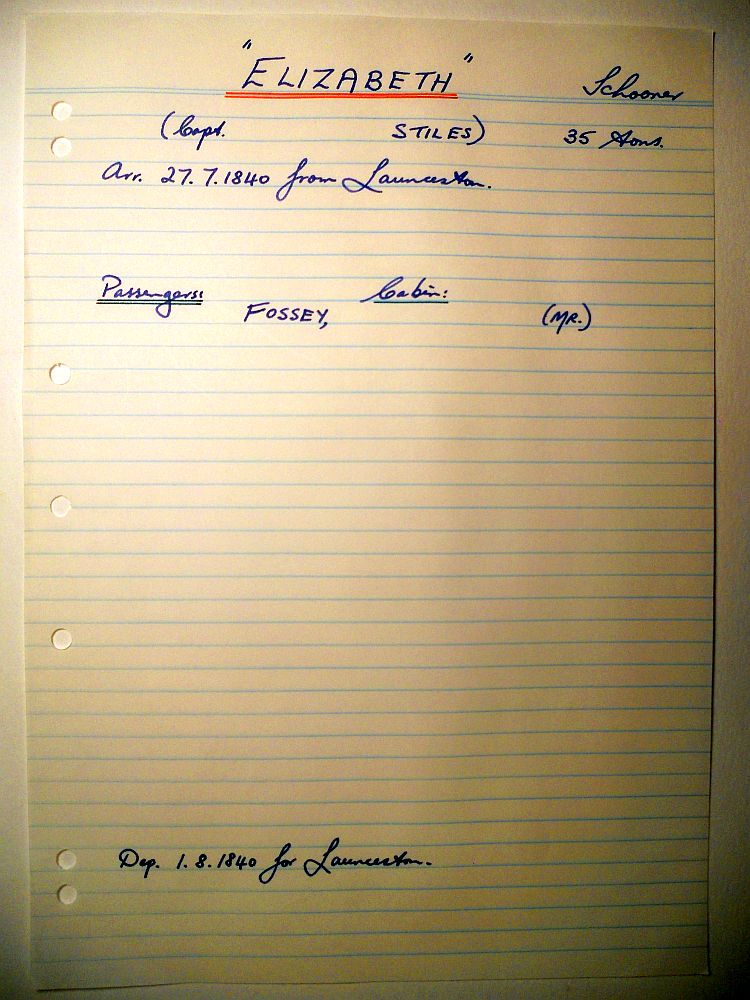 "ELIZABETH" Schooner
(Capt. STILES) 35 tons.
Arr. 27.7.1840 from Launceston.
Passengers: Cabin:
FOSSEY, (MR.)
Dep. 1.8.1840 for Launceston.